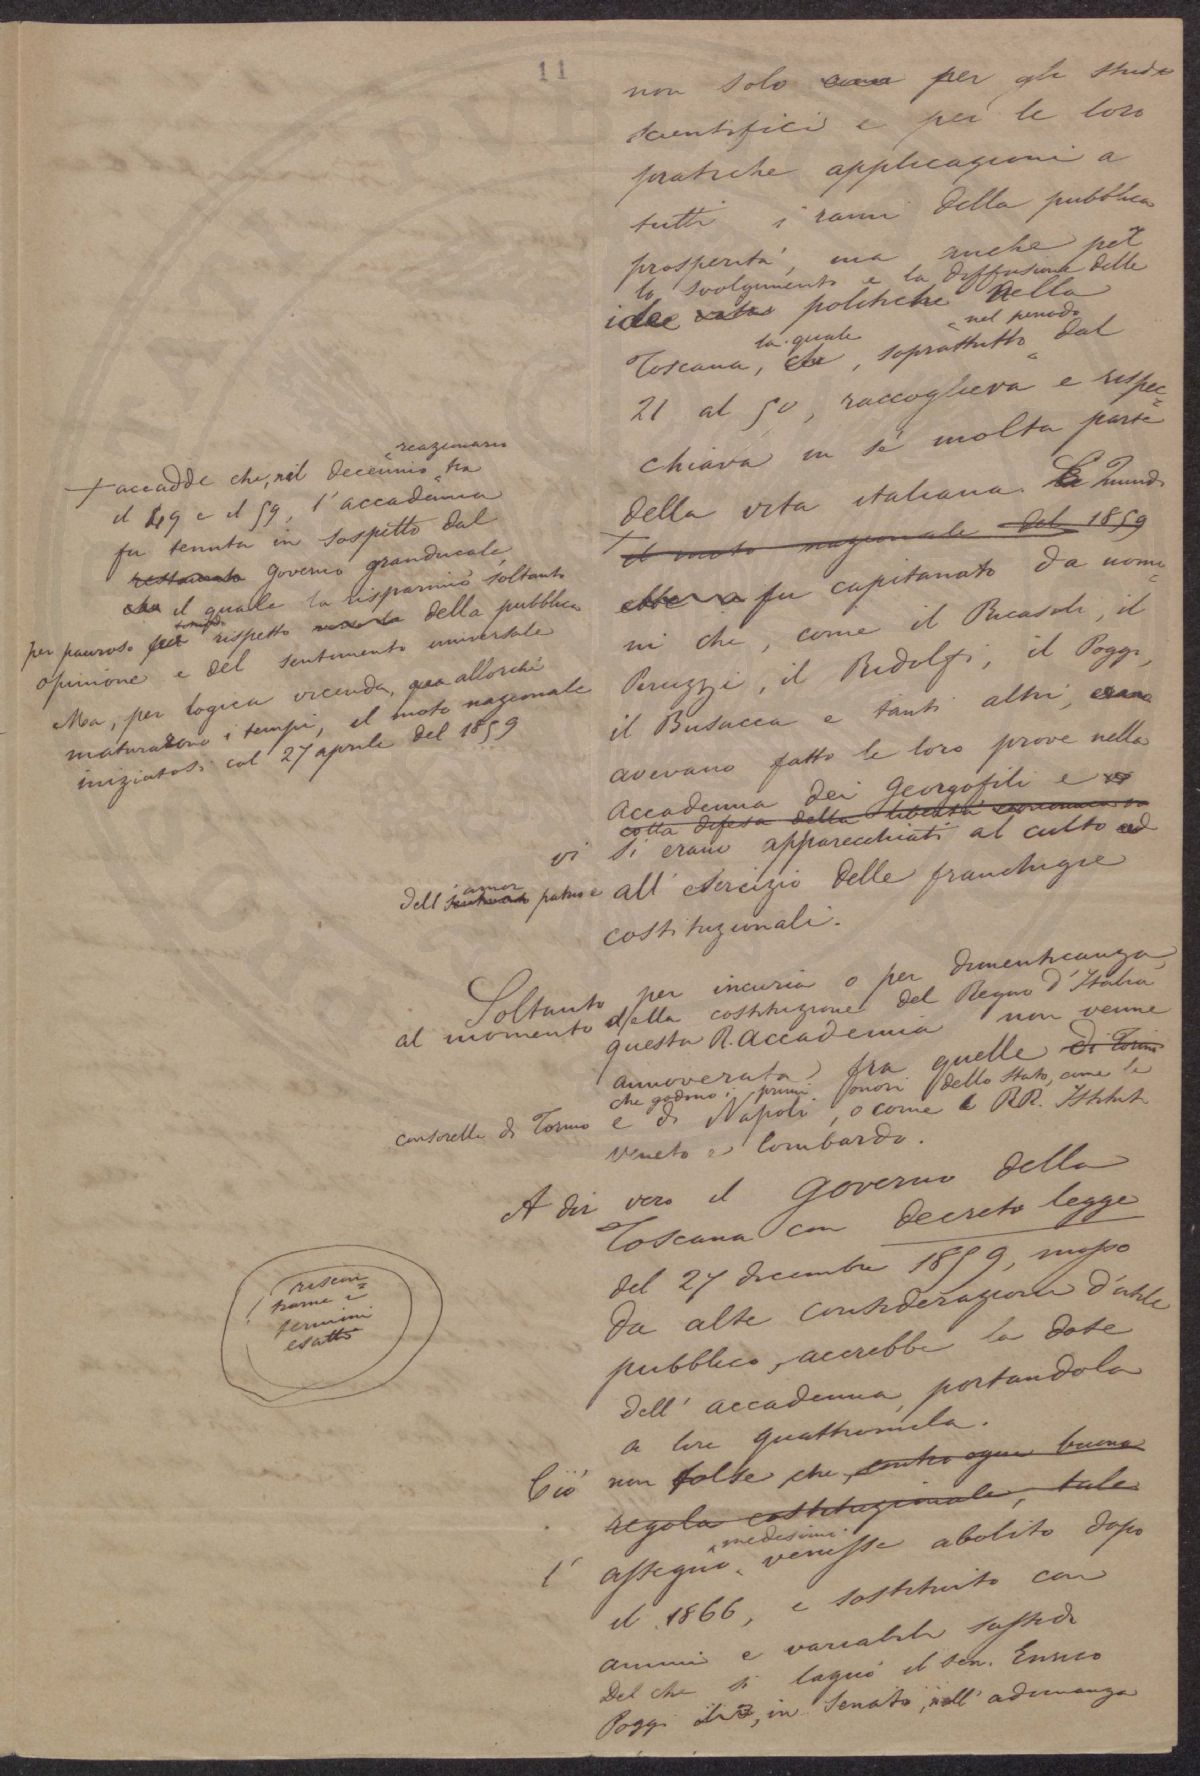 11
non solo per gli studi
scientifici e per le loro
pratiche applicazioni a
tutti i rami della pubblica
prosperità, ma anche per
lo svolgimento e la diffusione delle
idee politiche nella
la quale nel periodo
Toscana, che, soprattutto dal
21 al 50, raccoglieva e rispec=
chiava in sè molta parte
della vita italiana. Quindi
+ il moto nazionale del 1859
ebbe fu capitanato da uomi=
ni che, come il Ricasoli, il
Peruzzi, il Ridolfi, il Poggi,
il Busacca e tanti altri, erano
avevano fatto le loro prove nella
Accademia dei Georgofili e
colla difesa della libertà economica
vi si erano apparecchiati al culto
dell'amor patrio e all'esercizio delle franchigie
costituzionali.
reazionario
+ accadde che, nel decennio tra
il 49 e il 59, l'accademia
fu tenuta in sospetto dal
restaurato governo granducale,
che il quale la risparmiò soltanto
per pauroso rispetto della pubblica
opinione e del sentimento universale
Ma, per logica vicenda, allorchè
maturarono i tempi, il moto nazionale
iniziatosi col 27 aprile del 1859
Soltanto per incuria o per dimenticanza,
al momento della costituzione del Regno d'Italia
questa R. Accademia non venne
annoverata fra quelle di Torino
che godono i primi onori dello Stato, come le
consorelle di Torino e di Napoli, o come i RR. Istituti
veneto e lombardo.
A dir vero il Governo della
Toscana con decreto legge
del 27 dicembre 1859, mosso
da alte considerazioni d'utile
pubblico, accrebbe la dote
dell'accademia, portandola
a lire quattromila.
riscon
trame i =
termini
esatti
Ciò non tolse che contro ogni buona
regola costituzionale, tale
medesimo
l' assegno venisse abolito dopo
il 1866, e sostituito con
annui e variabili sussidi
Del che si lagnò il sen. Enrico
Poggi, in Senato, nell'adunanza